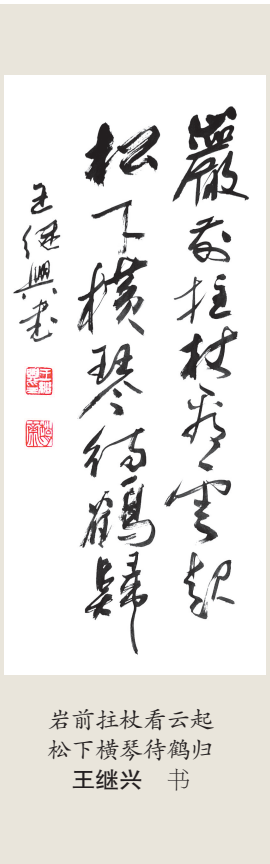 巖前拄杖看雲起
松下横琴待鶴歸
王继興书
岩前拄杖看云起
松下横琴待鹤归
王继兴 书